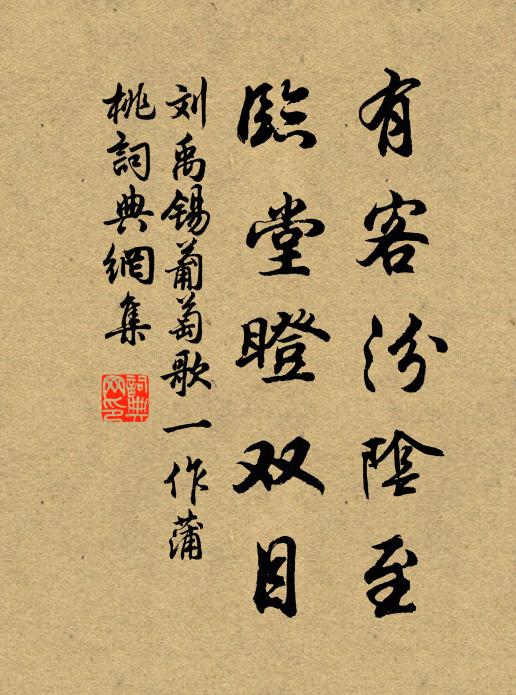 有客汾陰至
臨堂瞪双目
刘禹锡葡萄歌一作蒲
桃詞典網集
詞典
网印